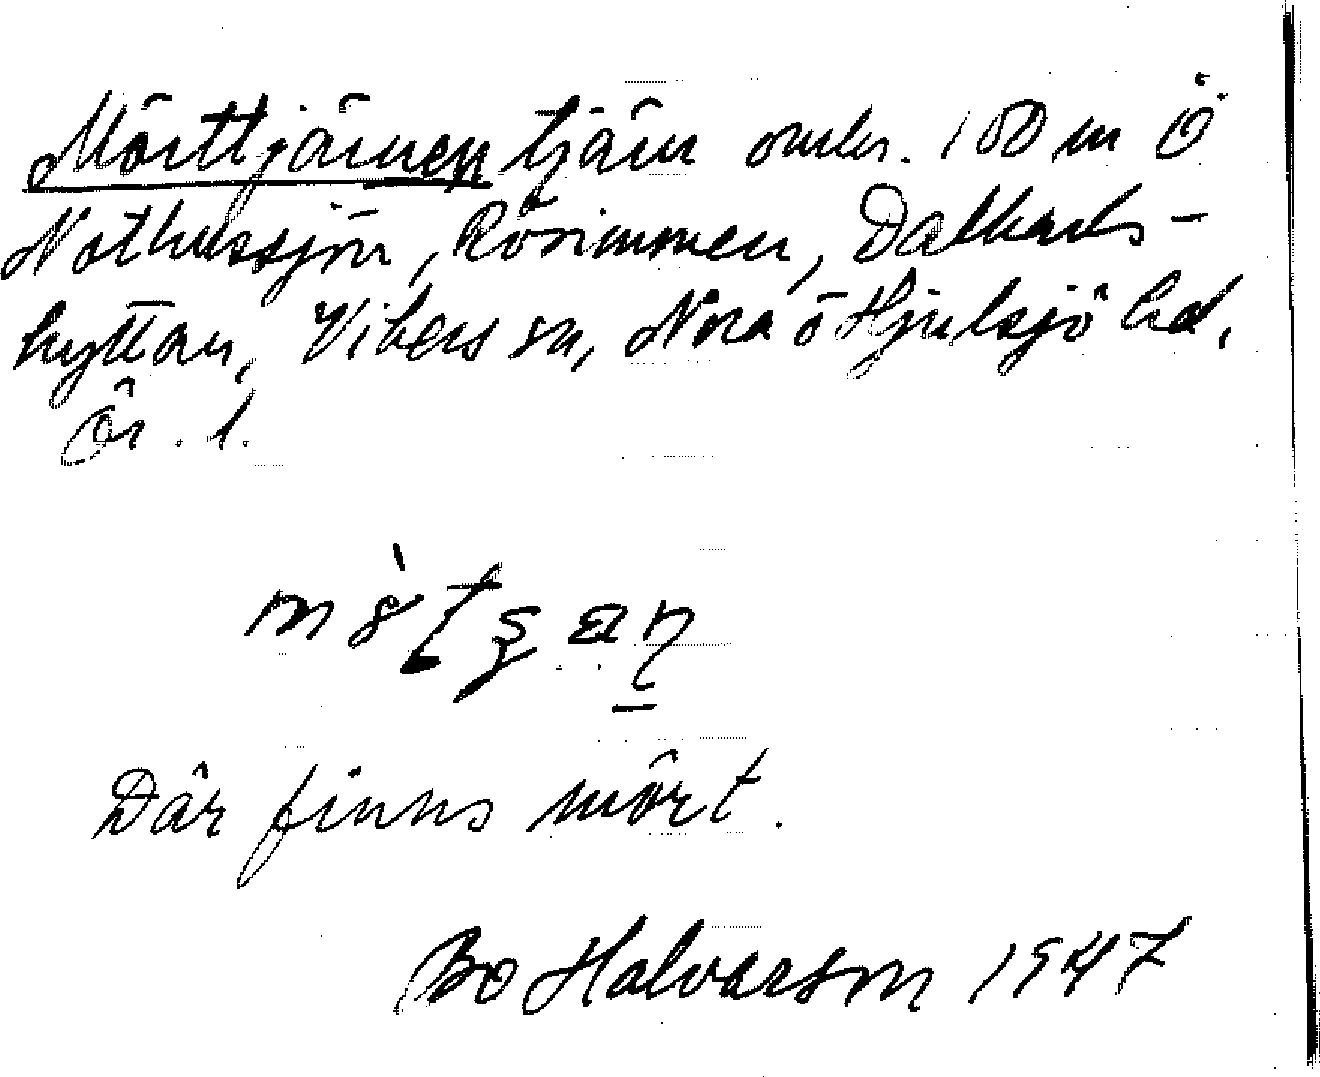 Mörttjärnen tjärn omkr. 100 m Ö
Nothussjön, Rösimmen, Dalkarls-
hyttan, Vikers sn, Nora o Hjulsjö hd,
Ör. l.
Där finns mört.
Bo Halvarson 1947